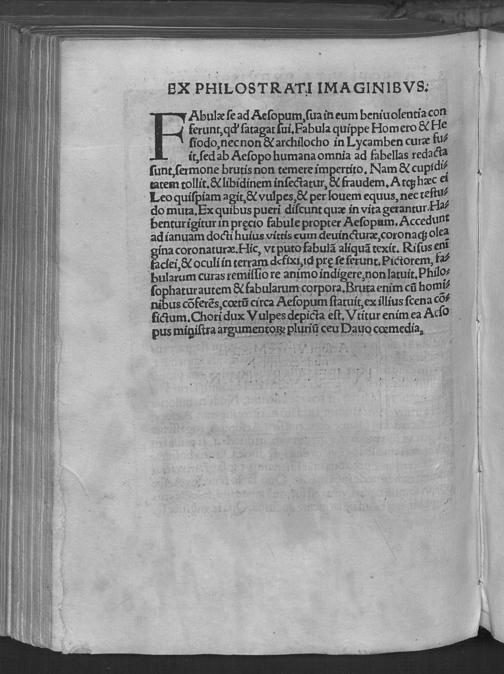 EX PHILOSTRATI IMAGINIBVS.
FAbulæ se ad Aesopum, sua in eum beniuolentia con
ferunt, qd' satagat sui. Fabula quippe Homero & He
siodo, nec non & archilocho in Lycamben curæ fu-
it, sed ab Aesopo humana omnia ad fabellas redacta
sunt, sermone brutis non temere impertito. Nam & cupidi-
tatem tollit, & libidinem insectatur, & fraudem. Atqꝫ hæc ei
Leo quispiam agit, & vulpes, & per Iouem equus, nec testu-
do muta. Ex quibus pueri discunt quæ in vita gerantur. Ha-
bentur igitur in precio fabulę propter Aesopum. Accedunt
ad ianuam docti huius vittis eum deuincturæ, coronaqꝫ olea
gina coronaturæ. Hic, vt puto fabulā aliquā texit. Risus eni
faciei, & oculi in terram defixi, id prę se ferunt. Pictorem, fa-
bularum curas remissiore animo indigere, non latuit. Philo-
sophatur autem & fabularum corpora. Bruta enim cū homi-
nibus cōferēs, cœtū circa Aesopum statuit, ex illius scena cō-
fictum. Chori dux Vulpes depicta est. Vtitur enim ea Aeso
pus ministra argumentoꝝ plurium ceu Dauo cœmedia.